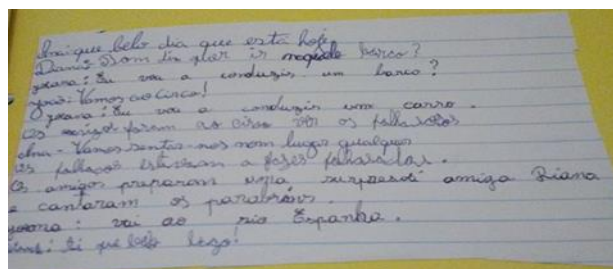 Ana: que belo dia que está hoje
Diana: Bom dia quer ir naquele barco?
Joana: Eu vou a conduzir um barco?
Vamos ao Circo!
Joana: Eu vou a conduzir um carro.
Os amigos foram ao circo ver os palhasos
Ana - Vamos sentar-nos num lugar qualquer
Os palhaços estiveram a fazer
Os amigos preparam uma surpresa amiga Diana
e cantaram os parabéns.
Joana: vai ao rio Espanha.
que